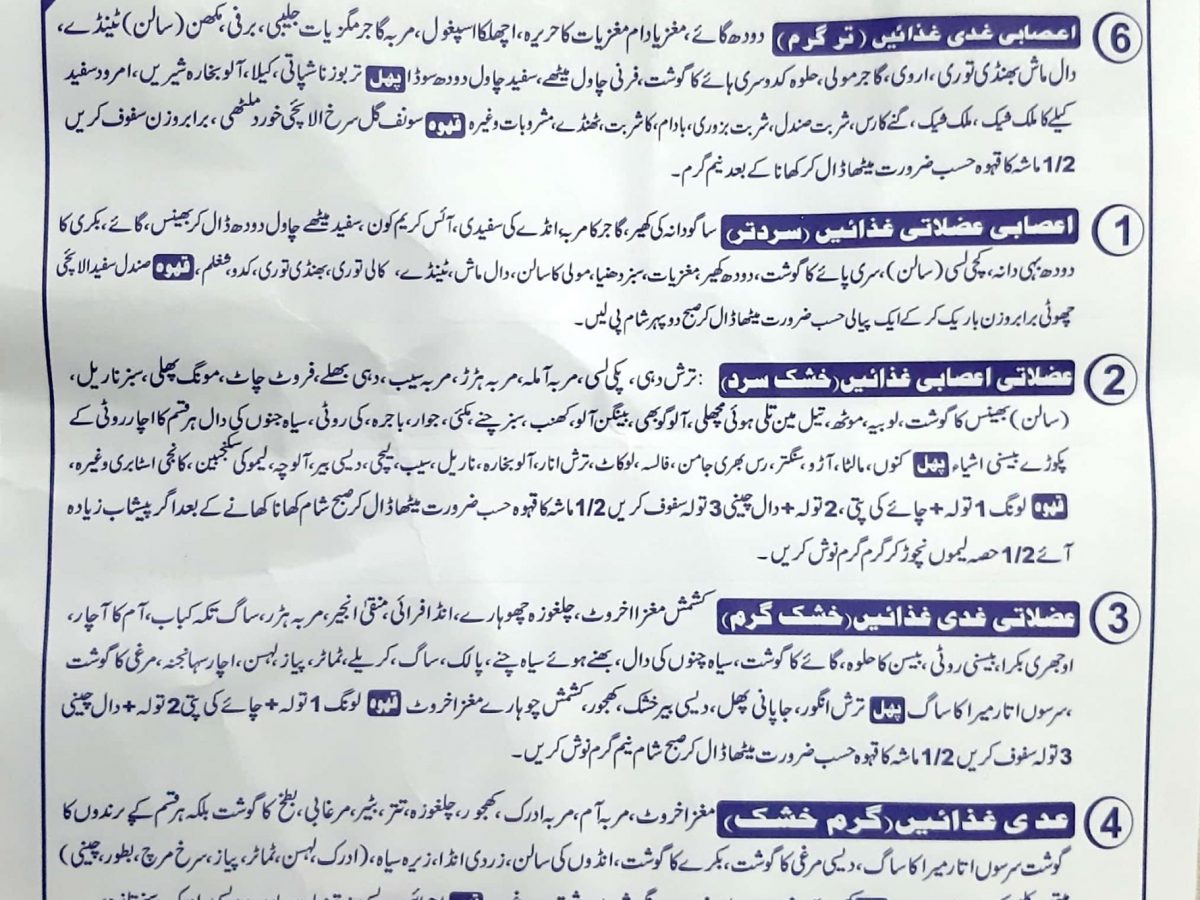 6 اعصابی غدی غذائیں (تر گرم) دودھ گائے، مغز یادام مغزیات کا حریرہ، اچھلکا اسپغول، مربہ گاجر مگزیات جلیبی، برفی، مکھن (سالن) ٹینڈے،
دال ماش بھنڈی توری، اروی، گاجر مولی، حلوہ کدو سری پائے کا گوشت، فرنی چاول میٹھے، سفید چاول دودھ سوڈا پھل تربوز ناشپاتی، کیلا، آلو بخارہ شیریں، امرود سفید
کیلے کا ملک شیک، ملک شیک، گنے کا رس، شربت صندل، شربت بزوری، بادام، کا شربت، ٹھنڈے، مشروبات وغیرہ قہوہ سونف گل سرخ الائچی خورد ملٹھی، برابر وزن سفوف کریں
1/2 ماشہ کا قہوہ حسب ضرورت میٹھا ڈال کر کھانا کے بعد نیم گرم۔
1 اعصابی عضلاتی غذائیں (سرد تر) ساگودانہ کی کھیر، گاجر کا مربہ انڈے کی سفیدی، آئس کریم کون، سفید میٹھے چاول دودھ ڈال کر بھینس، گائے، بکری کا
دودھ بہی دانہ، کچی لسی (سالن)، سری پائے کا گوشت، دودھ کھیر، مغزیات، سبز دھنیا، مولی کا سالن، دال ماش، ٹینڈے، کالی توری، بھنڈی توری، کدو، شغلم، قہوہ صندل سفید الائچی
چھوٹی برابر وزن باریک کر کے ایک پیالی حسب ضرورت میٹھا ڈال کر صبح دوپہر شام پی لیں۔
2 عضلاتی اعصابی غذائیں (خشک سرد) : ترش دہی، پکی لسی، مربہ آملہ، مربہ ہڑڑ، مربہ سیب، دہی بھلے، فروٹ چاٹ، مونگ پھلی، سبز ناریل،
(سالن) بھینس کا گوشت، لوبیہ، موٹھ، تیل مین تلی ہوئی مچھلی، آلو گوبھی، بینگن آلو، کھنب، سبز چنے، مکئی، جوار، باجرہ، کی روٹی، سیاہ چنوں کی دال ہر قسم کا اچار روٹی کے
پکوڑے بیسنی اشیاء پھل کنوں، مالٹا، آڑو، سنگتر، رس بھری جامن، فالسہ، لوکاٹ، ترش انار، آلو بخارہ، ناریل، سیب، لیچی، دیسی بیر، آلوچہ، لیمو کی سکنجبین، کانجی اسٹابری وغیرہ،
قہوہ لونگ 1 تولہ + چائے کی پتی، 2 تولہ + دال چینی 3 تولہ سفوف کریں 1/2 ماشہ کا قہوہ حسب ضرورت میٹھا ڈال کر صبح شام کھانا کھانے کے بعد اگر پیشاب زیادہ
آئے 1/2 حصہ لیموں نچوڑ کر گرم گرم نوش کریں۔
3 عضلاتی غدی غذائیں (خشک گرم) کشمش مغز ااخروٹ، چلغوزہ چھوہارے، انڈا فرائی، منقیٰ انجیر، مربہ ہڑر، ساگ تکہ کباب، آم کا آچار،
اوجھری بکرا، بیسنی روٹی، بیسن کا حلوہ، گائے کا گوشت، سیاہ چنوں کی دال، بھنے ہوئے سیاہ چنے، پالک، ساگ، کریلے، ٹماٹر، پیاز، لہسن، اچار سہانجنہ، مرغی کا گوشت
،سرسوں اتار میرا کا ساگ پھل ترش انگور، جاپانی پھل، دیسی بیر خشک، کھجور، کشمش چوہارے مغز اخروٹ قہوہ لونگ 1 تولہ + چائے کی پتی 2 تولہ + دال چینی
3 تولہ سفوف کریں 1/2 ماشہ کا قہوہ حسب ضرورت میٹھا ڈال کر صبح شام نیم گرم نوش کریں۔
4 غدی غذائیں (گرم خشک) مغز اخروٹ، مربہ آم، مربہ ادرک، کھجور، چلغوزہ، تتر، بٹیر، مرغابی، بطخ کا گوشت بلکہ ہر قسم کے پرندوں کا
گوشت سرسوں اتار میرا کا ساگ، دیسی مرغی کا گوشت، بکرے کا گوشت، انڈوں کی سالن، زردی انڈا، زیرہ سیاہ، (ادرک، لہسن، ٹماٹر، پیاز، سرخ مرچ، بطور، چینی)